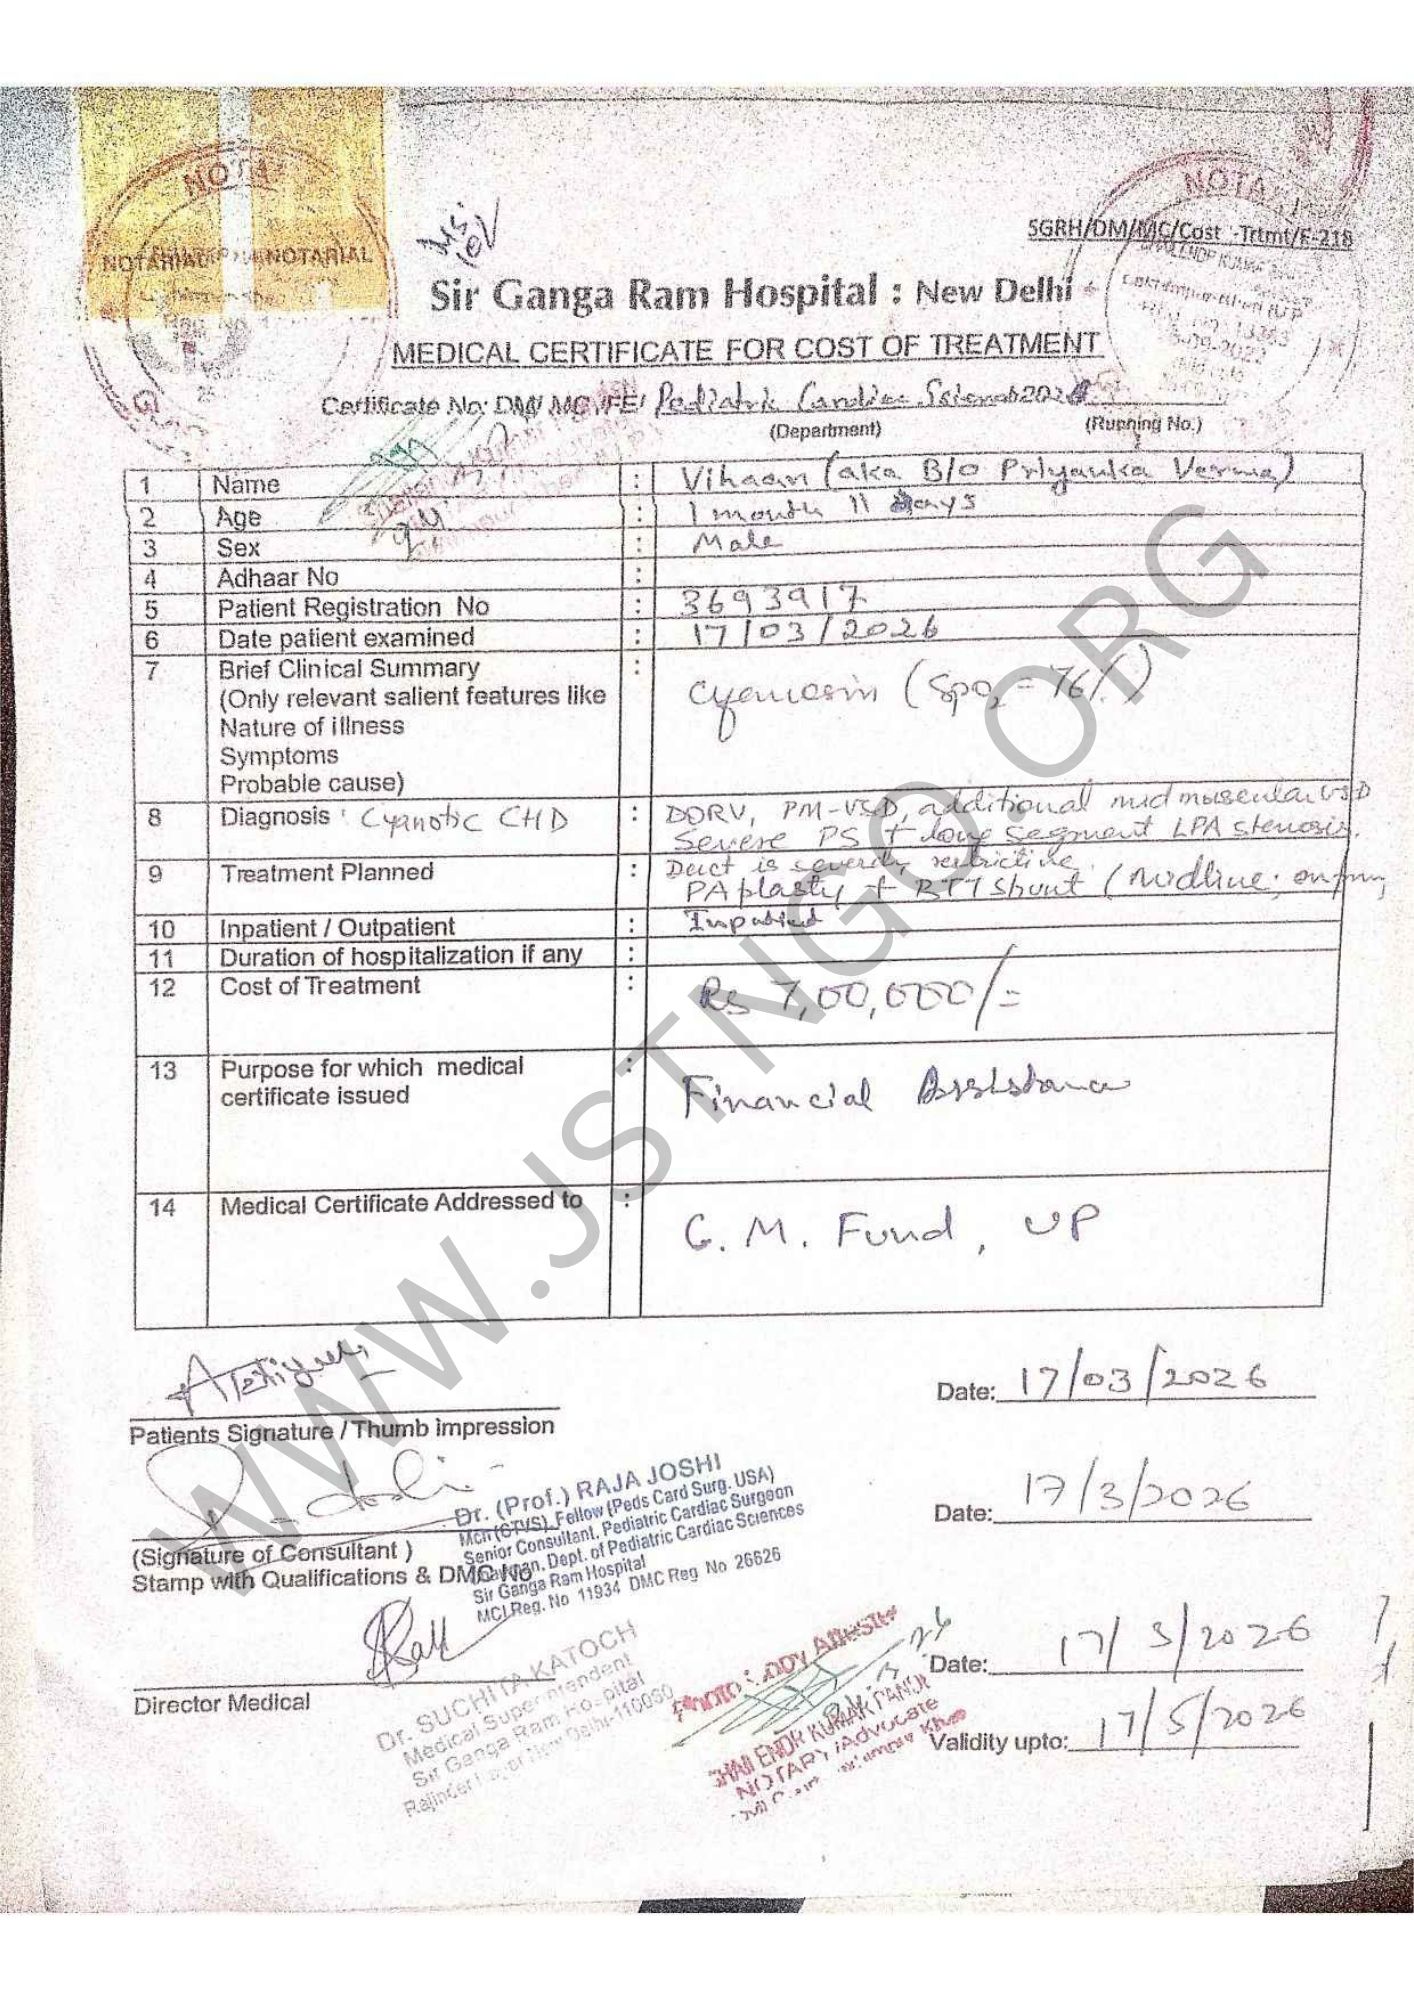 NOTARIAL
NOTARIAL
NOTA
SGRH/DM/MC/Cost -Trtmt/F-218
Sir Ganga Ram Hospital : New Delhi
MEDICAL CERTIFICATE FOR COST OF TREATMENT
Certificate No: DM/ MC /FE/ Pediatric Cardiac Sciences 2026
(Department) (Running No.)
1 Name : Vihaan (aka B/o Priyanka Verma)
2 Age : 1 month 11 days
3 Sex : Male
4 Adhaar No :
5 Patient Registration No : 3693917
6 Date patient examined : 17/03/2026
7 Brief Clinical Summary :
(Only relevant salient features like
Nature of illness
Symptoms
Probable cause)
(SpO2 = 76%)
8 Diagnosis : Cyanotic CHD : DORV, PM-VSD, additional mid muscular VSD
Severe PS + long segment LPA stenosis.
Duct is severely restrictive.
9 Treatment Planned : PA plasty + BTT shunt (midline; on pump
10 Inpatient / Outpatient : Inpatient
11 Duration of hospitalization if any :
12 Cost of Treatment : Rs 7,00,000/=
13 Purpose for which medical : Financial Assistance
certificate issued
14 Medical Certificate Addressed to : C. M. Fund, UP
WWW.JSTNGO.ORG
Date: 17/03/2026
Patients Signature / Thumb impression
Dr. (Prof.) RAJA JOSHI
Mch (CTVS), Fellow (Peds Card Surg. USA)
Senior Consultant, Pediatric Cardiac Surgeon
Chairman, Dept. of Pediatric Cardiac Sciences
Sir Ganga Ram Hospital
MCI Reg. No 11934 DMC Reg No 26626
Date: 17/3/2026
(Signature of Consultant )
Stamp with Qualifications & DMC No
Date: 17/3/2026
Director Medical
Dr. SUCHITA KATOCH
Medical Superintendent
Sir Ganga Ram Hospital
New Delhi-110060
PHOTO COPY ATTESTED
SHAILENDR KUMAR PANDE
NOTARY Advocate
Validity upto: 17/5/2026